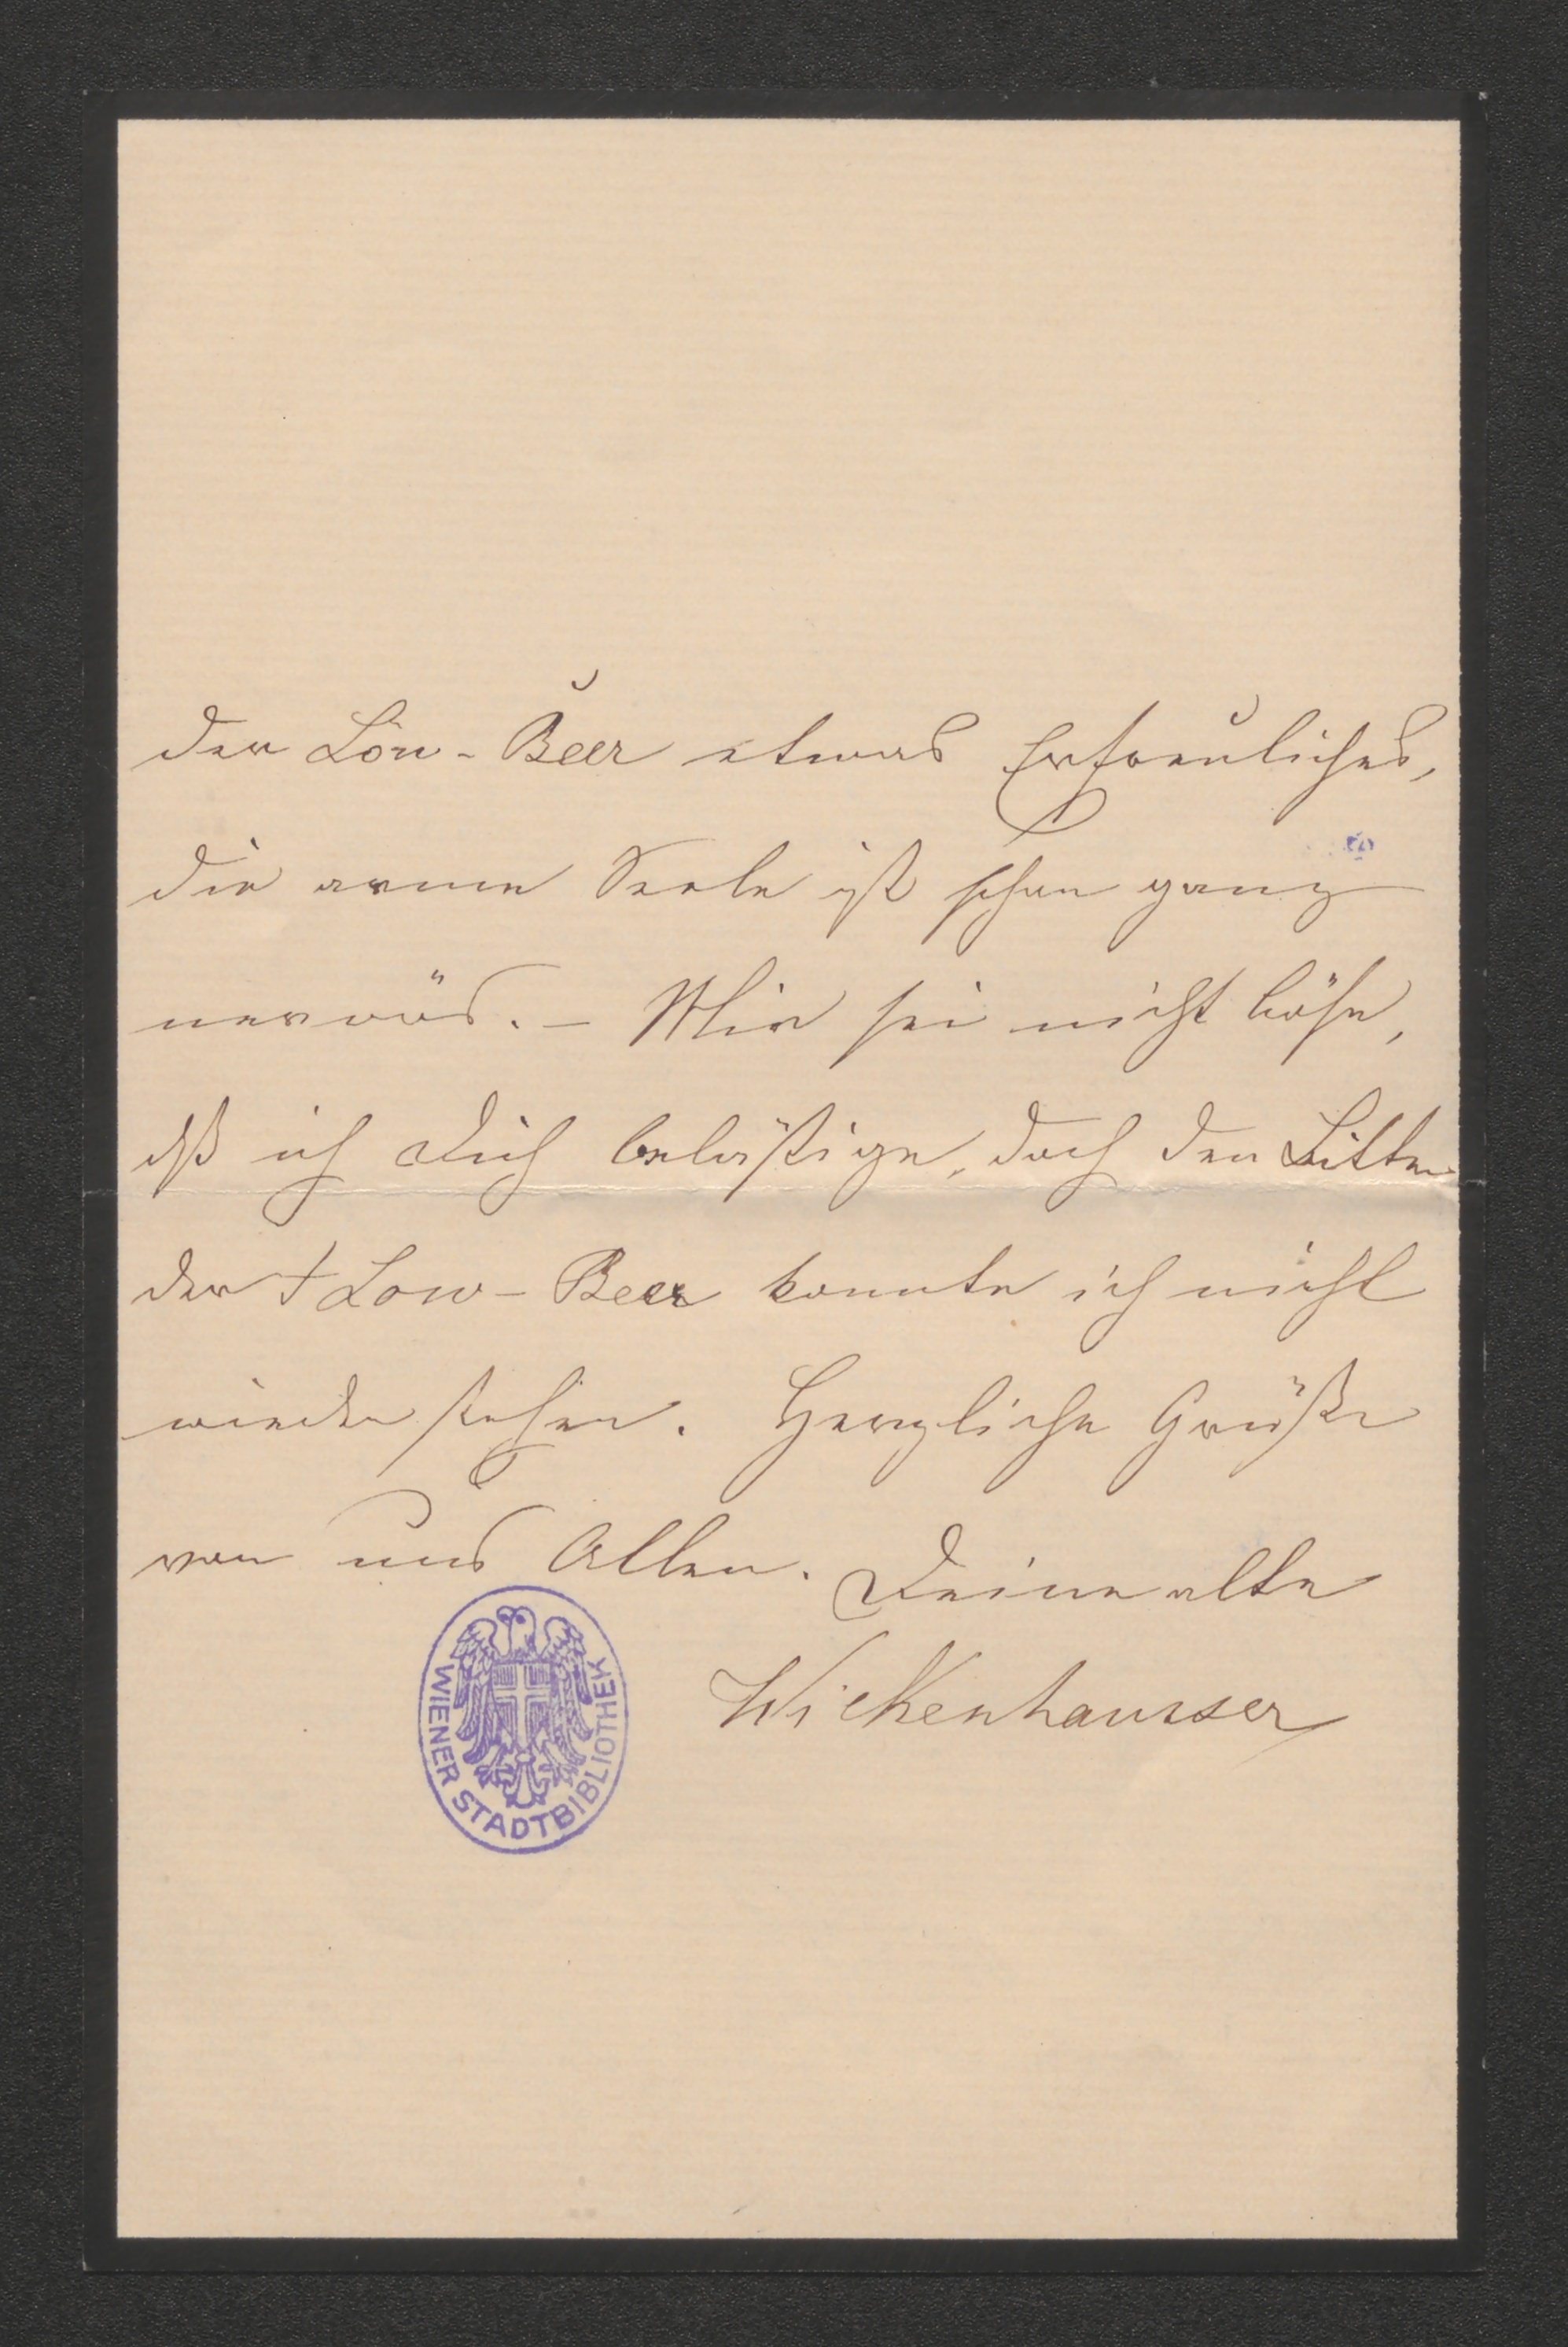 der Löw-Beer etwas Erfreuliches,
die arme Seele ist schon ganz
nervös. – Mir sei nicht böse,
dß ich Dich belästige, doch den Bitten
der † Low-Beer konnte ich nicht
wieder stehen. Herzliche Grüße
von uns Allen. Deine alte
Wickenhausser
WIENER STADTBIBLIOTHEK